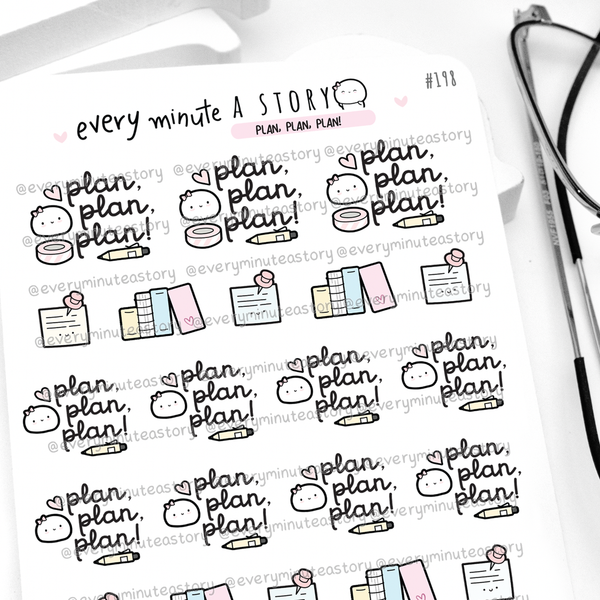 #198
every minute A STORY
PLAN, PLAN, PLAN!
@everyminuteastory @everyminuteastory @everyminuteastory
plan, plan, plan,
plan, plan, plan,
plan! plan! plan!
@everyminuteastory @everyminuteastory @everyminuteastory
@everyminuteastory @everyminuteastory @everyminuteastory
@everyminuteastory @everyminuteastory @everyminuteastory
plan, plan, plan, plan,
plan, plan, plan, plan,
plan! plan! plan! plan!
@everyminuteastory @everyminuteastory @everyminuteastory
plan, plan, plan, plan,
plan, plan, plan, plan,
plan! plan! plan! plan!
@everyminuteastory @everyminuteastory @everyminuteastory